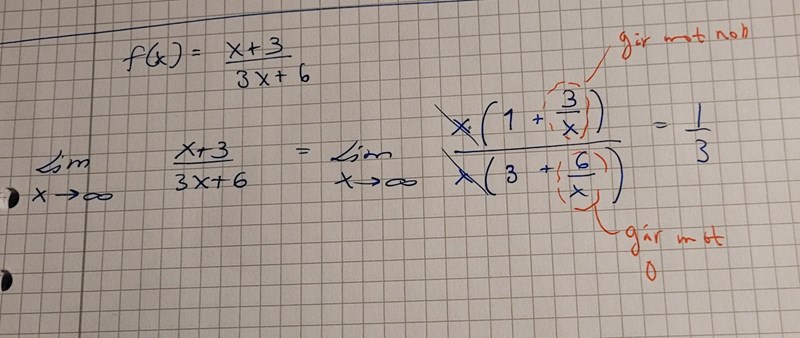 f(x) = (x+3)/(3x+6)
går mot noll
lim x→∞ (x+3)/(3x+6) = lim x→∞ x(1 + 3/x)/x(3 + 6/x) = 1/3
går mot
0